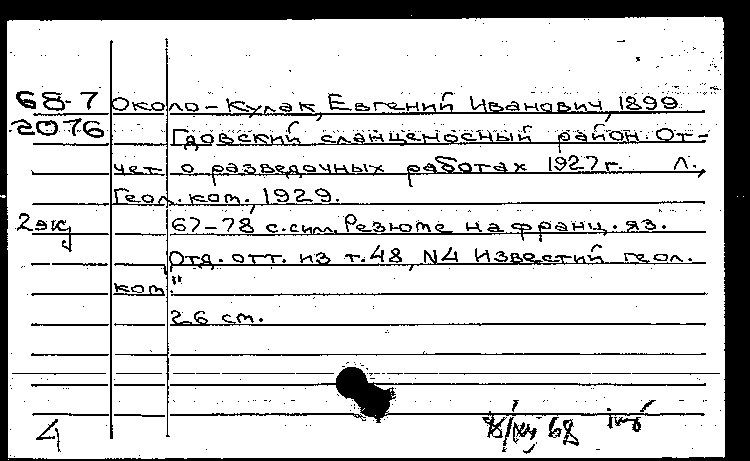 68-7 Около-Кулак, Евгений Иванович, 1899
2076 Гдовский сланценосный район. От-
чет о разведочных работах 1927 г. Л.,
Геол. ком., 1929.
2 экз 67-78 с. силл. Резюме на франц. яз.
Отд. отт. из т. 48, N4 Известий геол.
ком."
26 см.
4 68